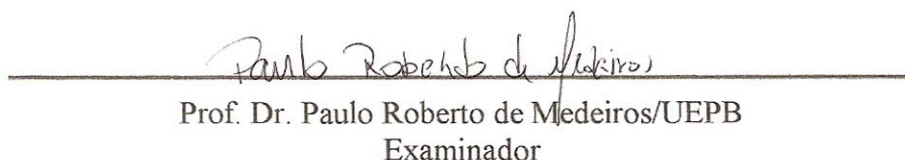 Paulo Roberto de Medeiros
Prof. Dr. Paulo Roberto de Medeiros/UEPB
Examinador